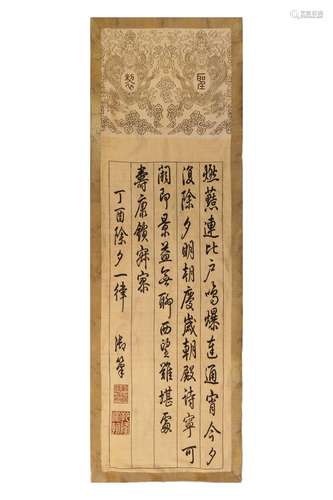 燃爇連比戶鳴爆達通宵今夕
復除夕明朝慶歲朝殿詩寧可
闕即景益無聊西望難堪處
壽康鎖寂寥
丁酉除夕一律 御筆